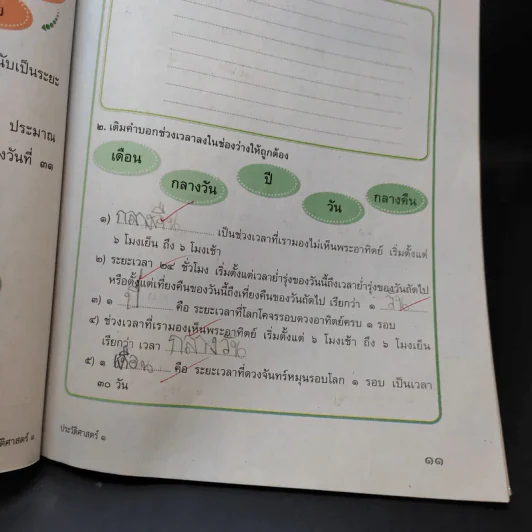 นับเป็นระยะ
ประมาณ
งวันที่ ๓๑
๒. เติมคำบอกช่วงเวลาลงในช่องว่างให้ถูกต้อง
เดือน กลางวัน ปี วัน กลางคืน
๑) กลางคืน เป็นช่วงเวลาที่เรามองไม่เห็นพระอาทิตย์ เริ่มตั้งแต่
๖ โมงเย็น ถึง ๖ โมงเช้า
๒) ระยะเวลา ๒๔ ชั่วโมง เริ่มตั้งแต่เวลาย่ำรุ่งของวันนี้ถึงเวลาย่ำรุ่งของวันถัดไป
หรือตั้งแต่เที่ยงคืนของวันนี้ถึงเที่ยงคืนของวันถัดไป เรียกว่า ๑ วัน
๓) ๑ ปี คือ ระยะเวลาที่โลกโคจรรอบดวงอาทิตย์ครบ ๑ รอบ
๔) ช่วงเวลาที่เรามองเห็นพระอาทิตย์ เริ่มตั้งแต่ ๖ โมงเช้า ถึง ๖ โมงเย็น
เรียกว่า เวลา กลางวัน
๕) ๑ เดือน คือ ระยะเวลาที่ดวงจันทร์หมุนรอบโลก ๑ รอบ เป็นเวลา
๓๐ วัน
ประวัติศาสตร์ ๑
๑๑